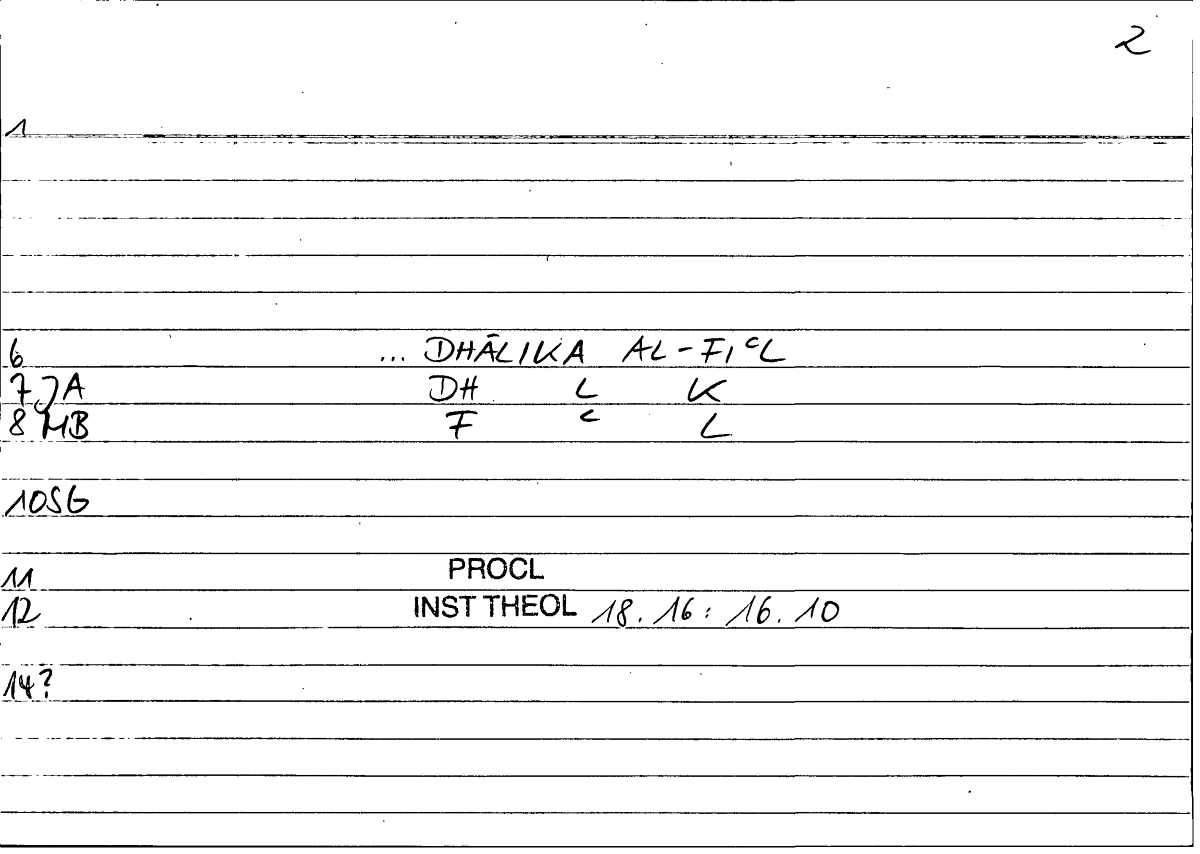 2
1
6 ... DHĀLIKA AL-FIᶜL
7 JA DH L K
8 MB F ᶜ L
10 SG
11 PROCL
12 INST THEOL 18.16: 16.10
14?